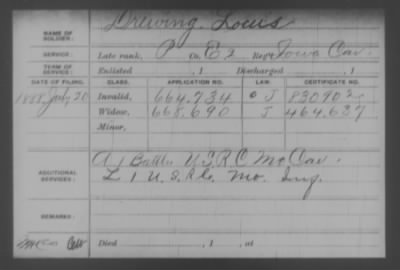 NAME OF SOLDIER: Drewing, Louis
SERVICE: Late rank, P Co. E 2 Reg't Iowa Cav.
TERM OF SERVICE: Enlisted , 1 Discharged , 1
DATE OF FILING. CLASS. APPLICATION NO. LAW. CERTIFICATE NO.
1888 July 20 Invalid, 664.734 J 830902
Widow, 668.690 J 464.637
Minor,
ADDITIONAL SERVICES: A, Battn U.S.R.C. Mo Cav.
L 1 U.S.R.Co. Mo. Inf.
REMARKS:
Died , 1 , at